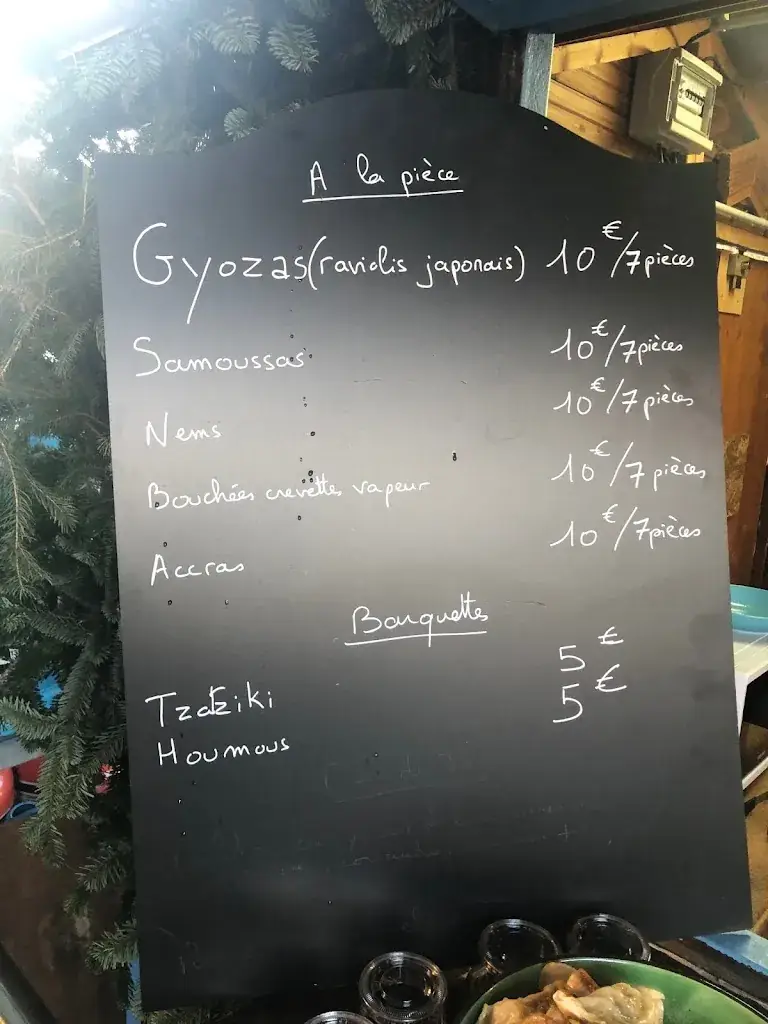 A la pièce
Gyozas (raviolis japonais) 10€/7pièces
Samoussas 10€/7pièces
Nems 10€/7pièces
Bouchées crevettes vapeur 10€/7pièces
Accras 10€/7pièces
Barquettes
Tzatziki 5€
Houmous 5€